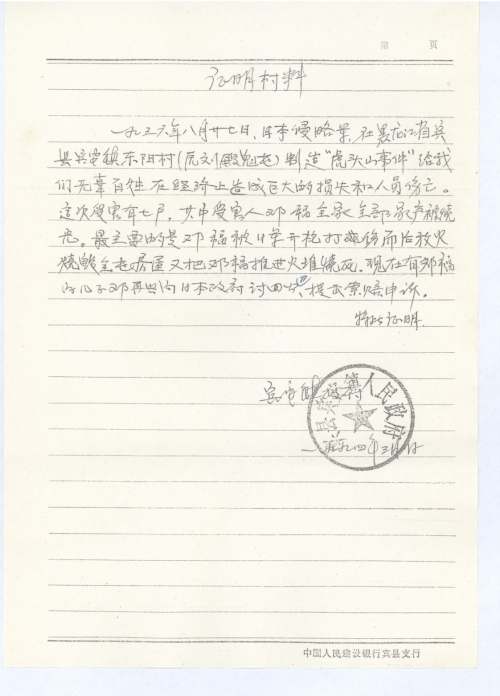 第 页
证明材料
一九三六年八月廿七日，日本侵略军，在黑龙江省宾
县宾安镇东阳村 制造“虎头山事件”给我
们无辜百姓在经济上造成巨大的损失和人员伤亡。
这次受害有七户，其中受害人邓福全家全部家产被烧
光。最主要的是邓福被日军开枪打 伤而后放火
烧毁全 房屋又把邓福推进火堆烧死。现在有邓福
的儿子邓再 向日本政府讨回 提出索赔申诉。
特此证明
宾安镇
县宾安镇人民政府
一九九四年三月 日
中国人民建设银行宾县支行